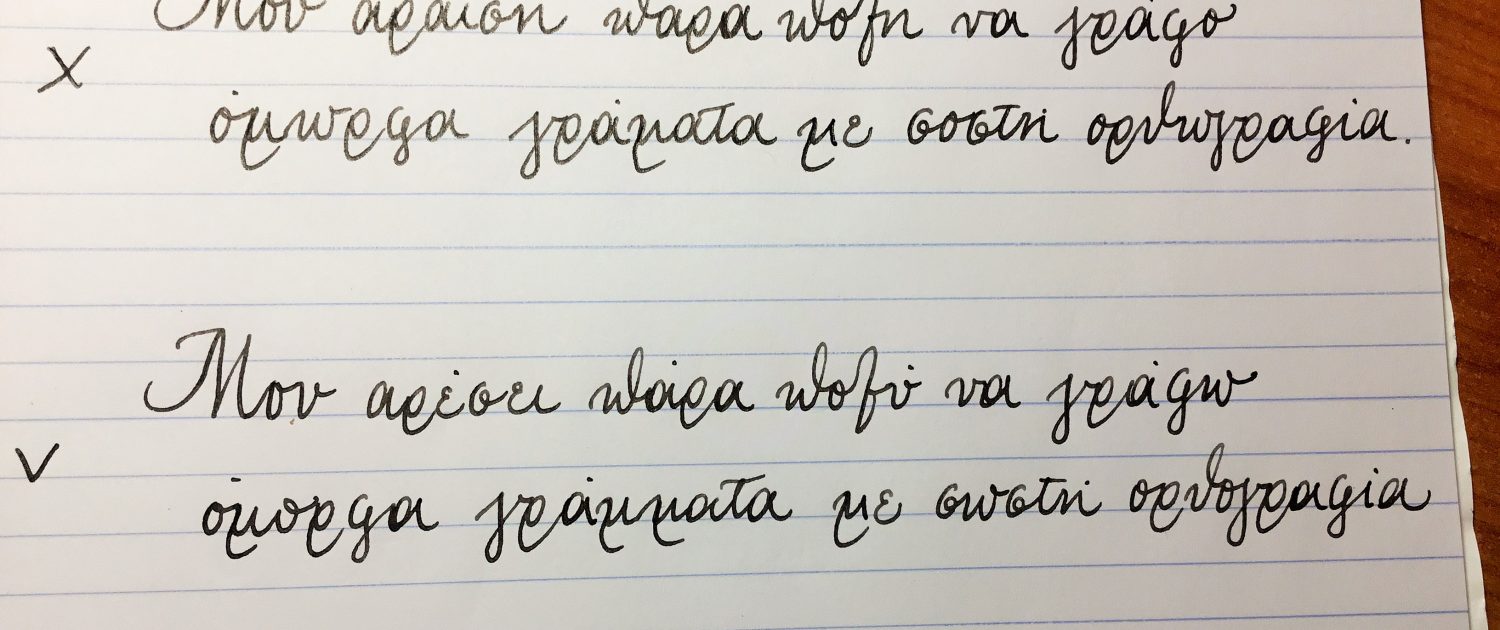 Μου αραιση παρα πολη να γράφο
X
όμωρφα γράματα με σοστή ορθωγραφία.
Μου αρέσει πάρα πολύ να γράφω
V
όμορφα γράμματα με σωστή ορθογραφία